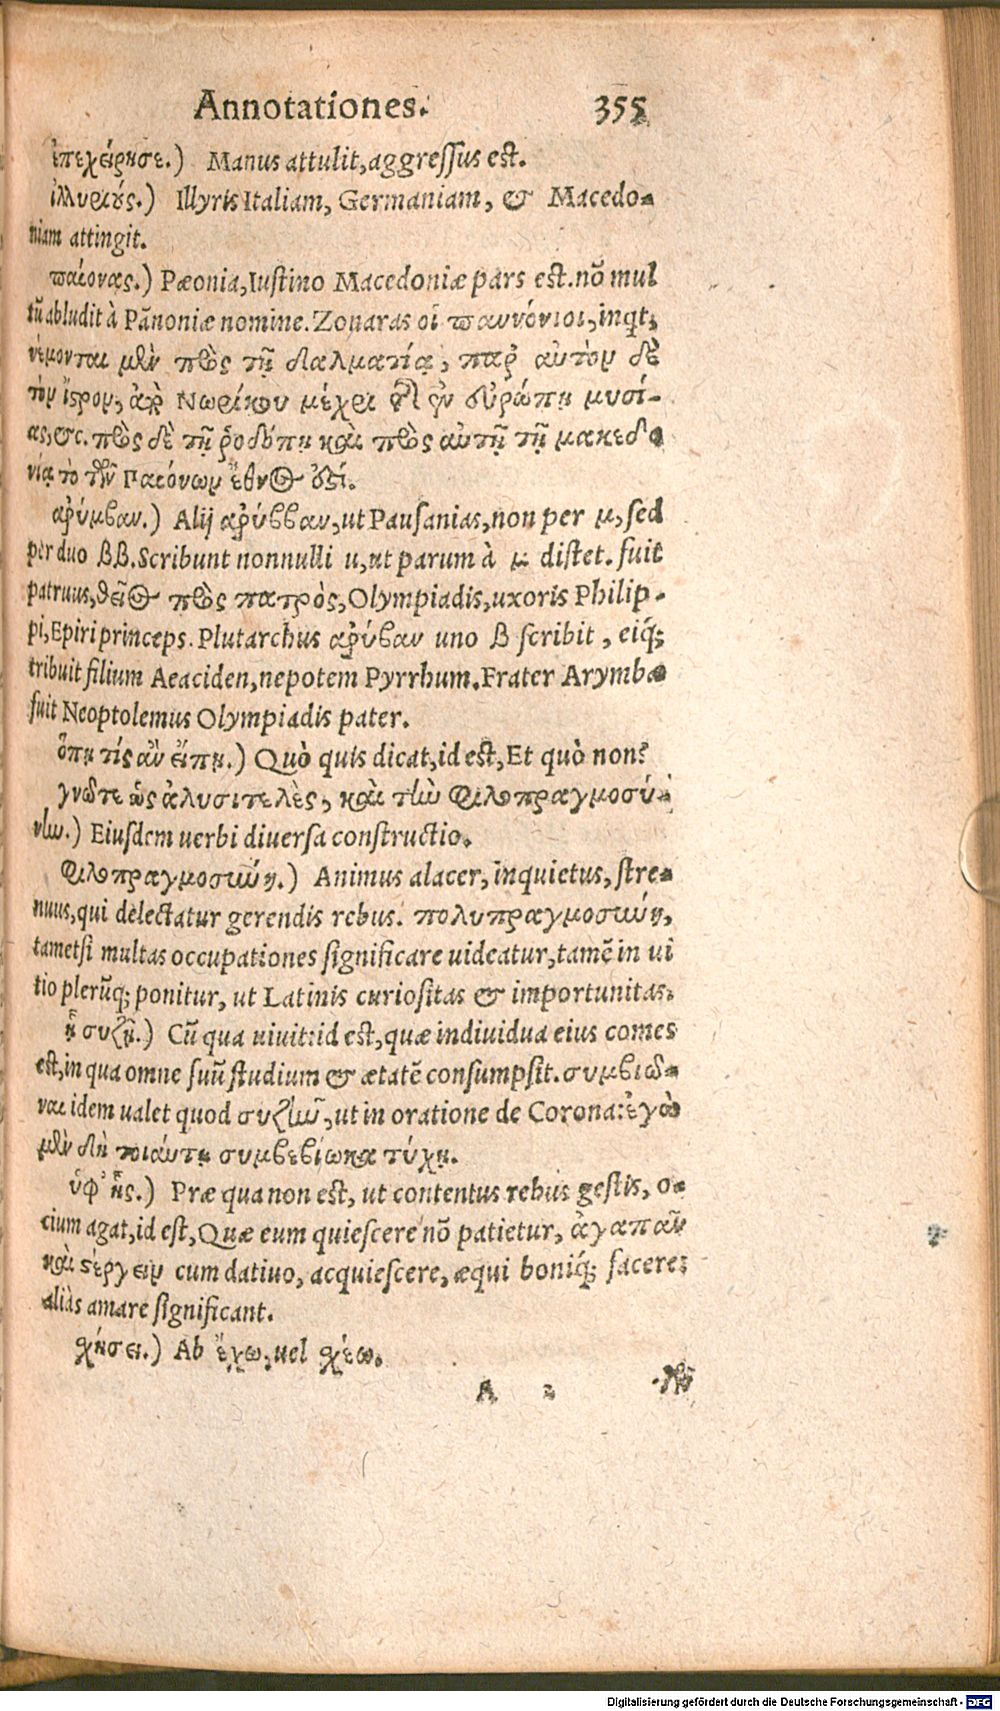 Annotationes. 355
ἐπεχείρησε.) Manus attulit, aggressus est.
ἰλλυριούς.) Illyris Italiam, Germaniam, & Macedo-
niam attingit.
παίονας.) Pæonia, Iustino Macedoniæ pars est. nō mul
tū abludit à Pānoniæ nomine. Zonaras οἱ παννόνιοι, inqt,
νέμονται μὲν πρὸς τῇ δαλματίᾳ, παρ' αὐτὸν δὲ
τὸν ἴστρον, ἀπὸ Νωρίκου μέχρι τῆς ἐν εὐρώπῃ μυσί-
ας, &c. πρὸς δὲ τῇ ῥοδόπῃ καὶ πρὸς αὐτῇ τῇ μακεδο
νίᾳ τὸ τῶν Παιόνων ἔθνος ἐστί.
ἀρύμβαν.) Alij ἀρύββαν, ut Pausanias, non per μ, sed
per duo ββ. Scribunt nonnulli u, ut parum à μ distet. fuit
patruus, θεῖος πρὸς πατρὸς, Olympiadis, uxoris Philip-
pi, Epiri princeps. Plutarchus ἀρύβαν uno β scribit, eiq́;
tribuit filium Aeaciden, nepotem Pyrrhum. Frater Arymbæ
fuit Neoptolemus Olympiadis pater.
ὅπη τίς ἂν εἴπῃ.) Quò quis dicat, id est, Et quò non?
γνῶτε ὡς ἀλυσιτελὲς, καὶ τὴν φιλοπραγμοσύ-
νην.) Eiusdem uerbi diuersa constructio.
φιλοπραγμοσύνη.) Animus alacer, inquietus, stre-
nuus, qui delectatur gerendis rebus. πολυπραγμοσύνη,
tametsi multas occupationes significare uideatur, tamē in ui
tio plerūq; ponitur, ut Latinis curiositas & importunitas.
ᾗ συζῇ.) Cū qua uiuit: id est, quæ indiuidua eius comes
est, in qua omne suū studium & ætatē consumpsit. συμβιῶ-
ναι idem ualet quod συζῆν, ut in oratione de Corona: ἐγὼ
μὲν δὴ τοιαύτῃ συμβεβίωκα τύχῃ.
ὑφ' ἧς.) Præ qua non est, ut contentus rebus gestis, o-
cium agat, id est, Quæ eum quiescere nō patietur, ἀγαπᾶν
καὶ στέργειν cum datiuo, acquiescere, æqui boniq́; facere:
alias amare significant.
σχήσει.) Ab ἔχω, uel σχέω.
A 2 τῶν